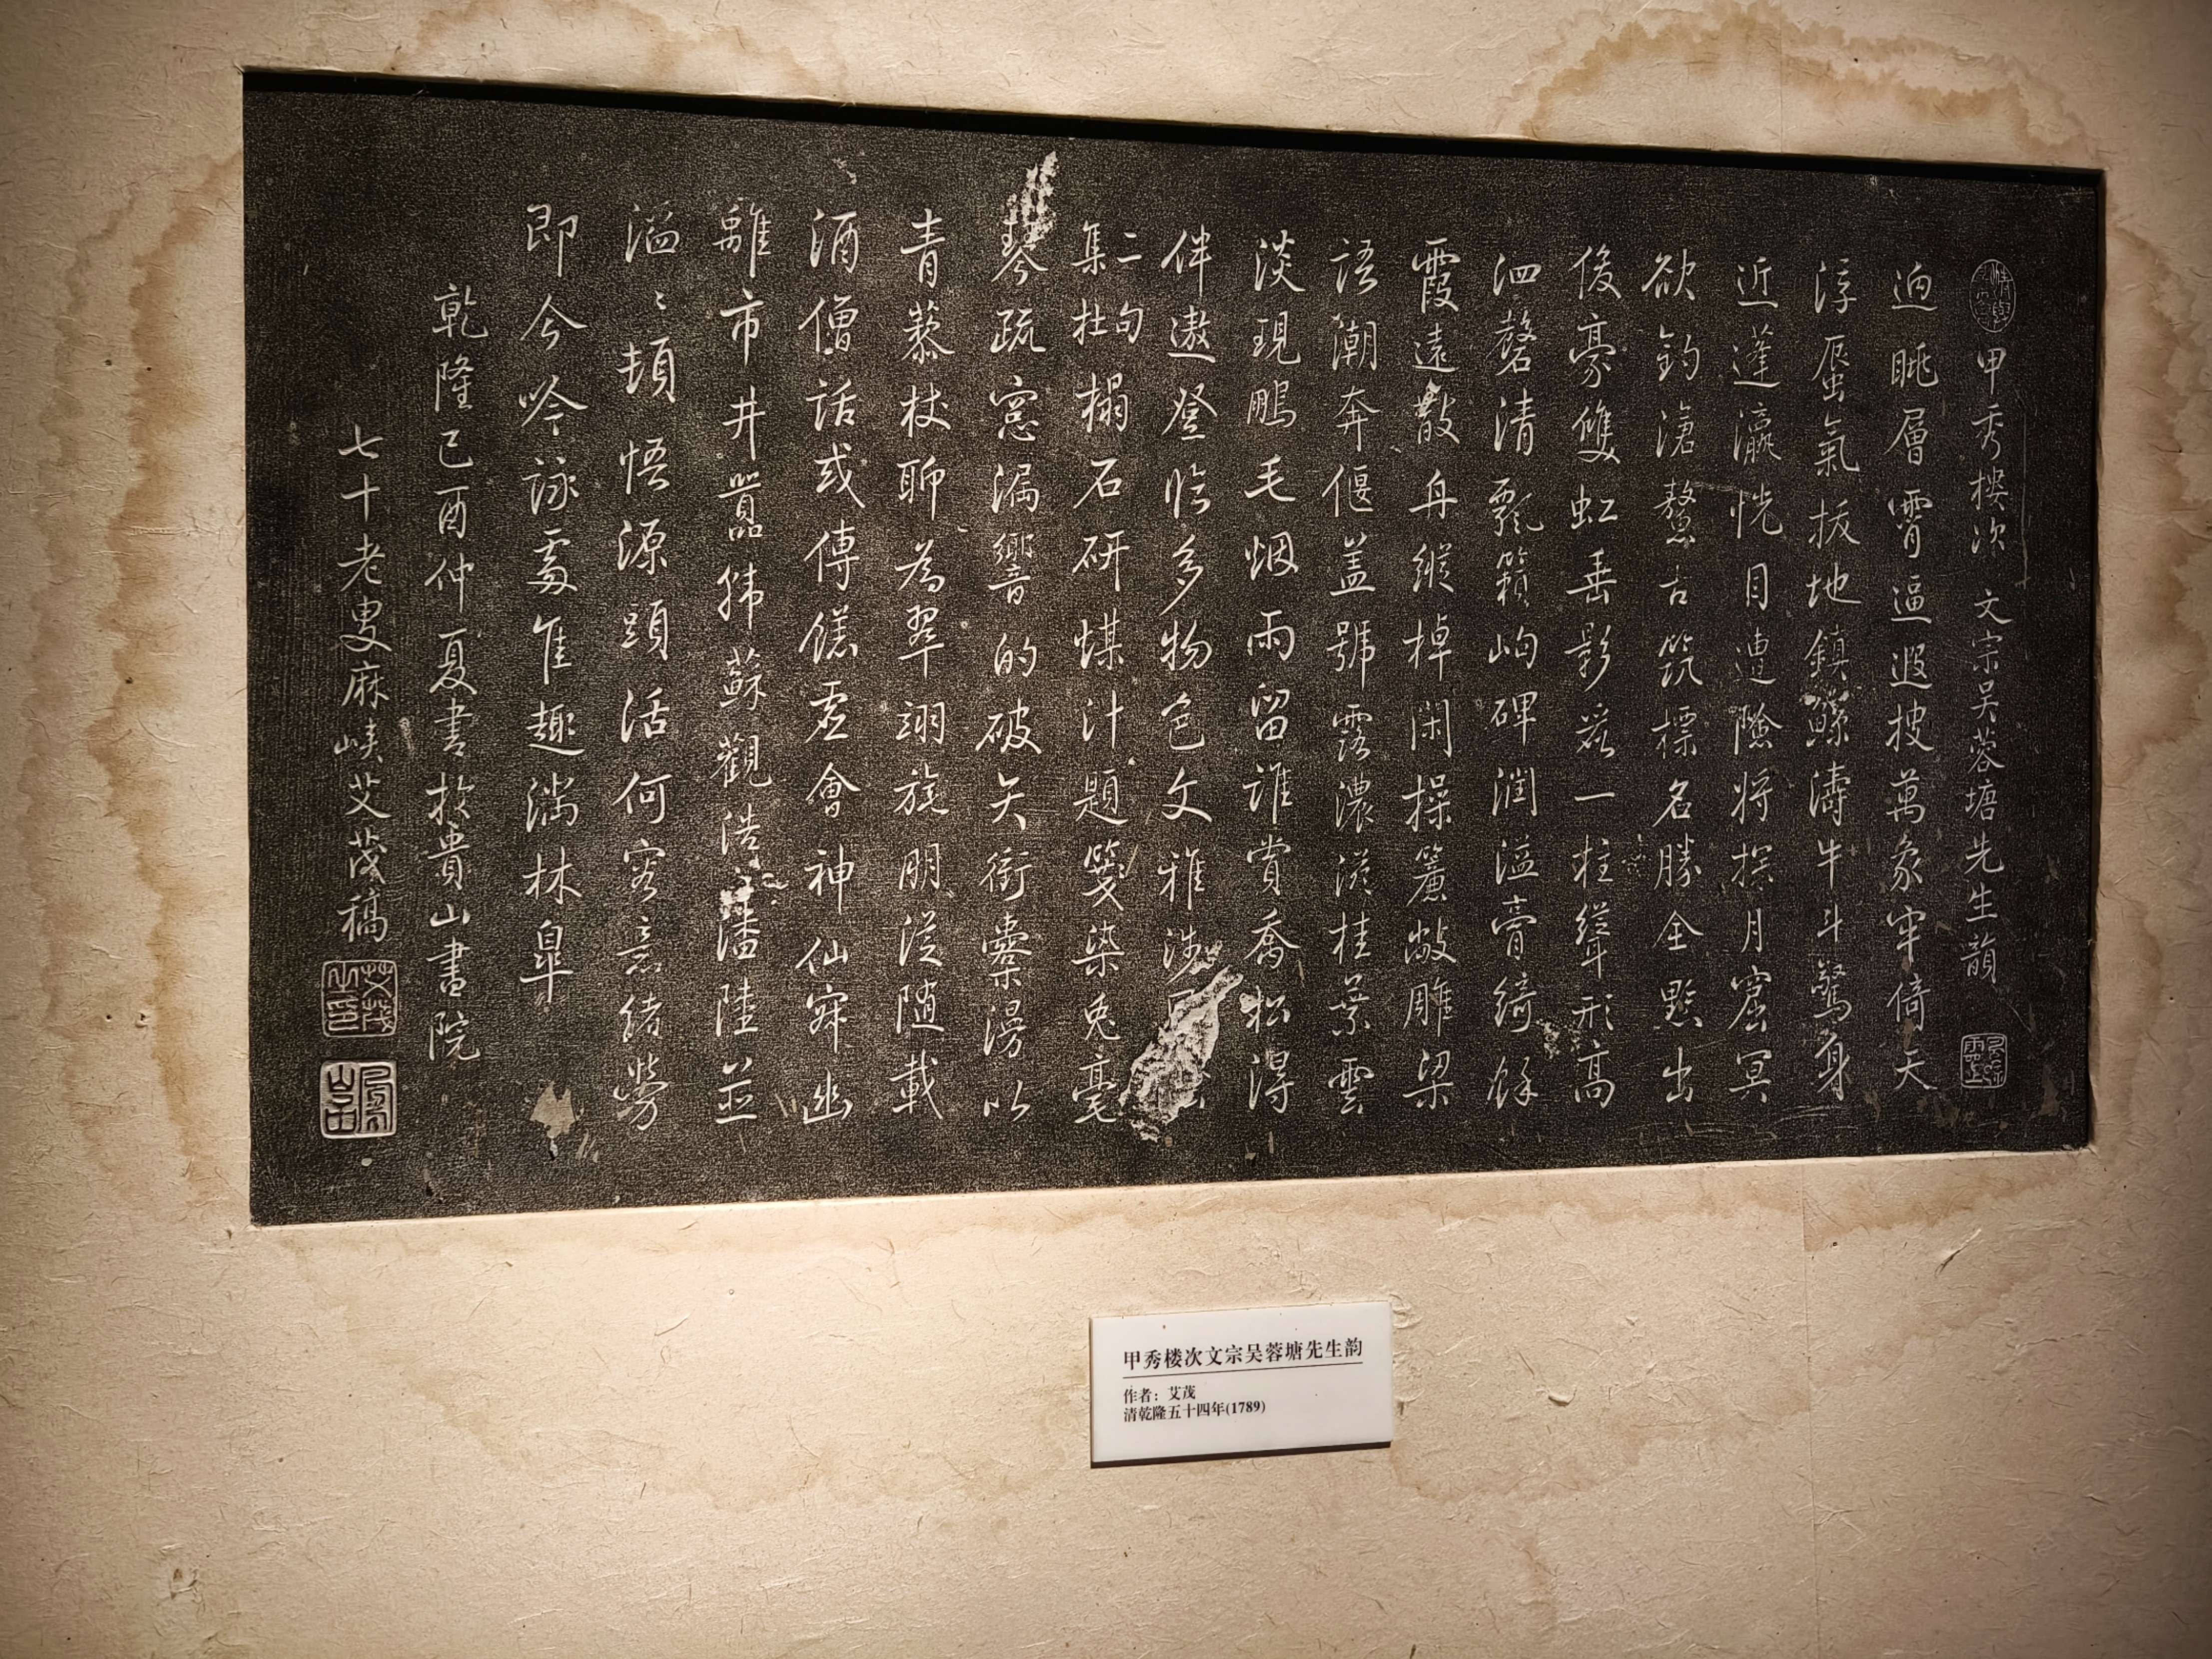 甲秀楼次 文宗吴蓉塘先生韻
迥眺層霄逼遐披萬象牢倚天
浮蜃氣拔地鎮鰲濤牛斗驚身
近蓬瀛恍目遭險將探月窟冥
欲釣滄鰲古筑標名勝全黔出
俊豪雙虹垂影落一柱聳形高
泗磬清飄籟岣碑潤溢膏綺餘
霞遠散舟縱棹閑操簾敞雕梁
語潮奔偃盖號露濃滋桂葉雲
淡現鵰毛烟雨留誰賞喬松得
伴遨登临多物色文雅涉
二句
集杜
榻石研煤汁題箋染兔毫
琴疏窓漏響的破矢銜櫜漫以
青藜杖聊為翠羽旄朋從随載
酒僧話或傳餻君會神仙寐幽
離市井囂韩蘇觀浩潘陸並
滔〻頓悟源頭活何容意緒勞
即今吟詠處隹趣滿林皐
乾隆己酉仲夏書於貴山書院
七十老叟麻峡艾茂稿
艾茂之印
甲秀楼次文宗吴蓉塘先生韵
作者：艾茂
清乾隆五十四年(1789)